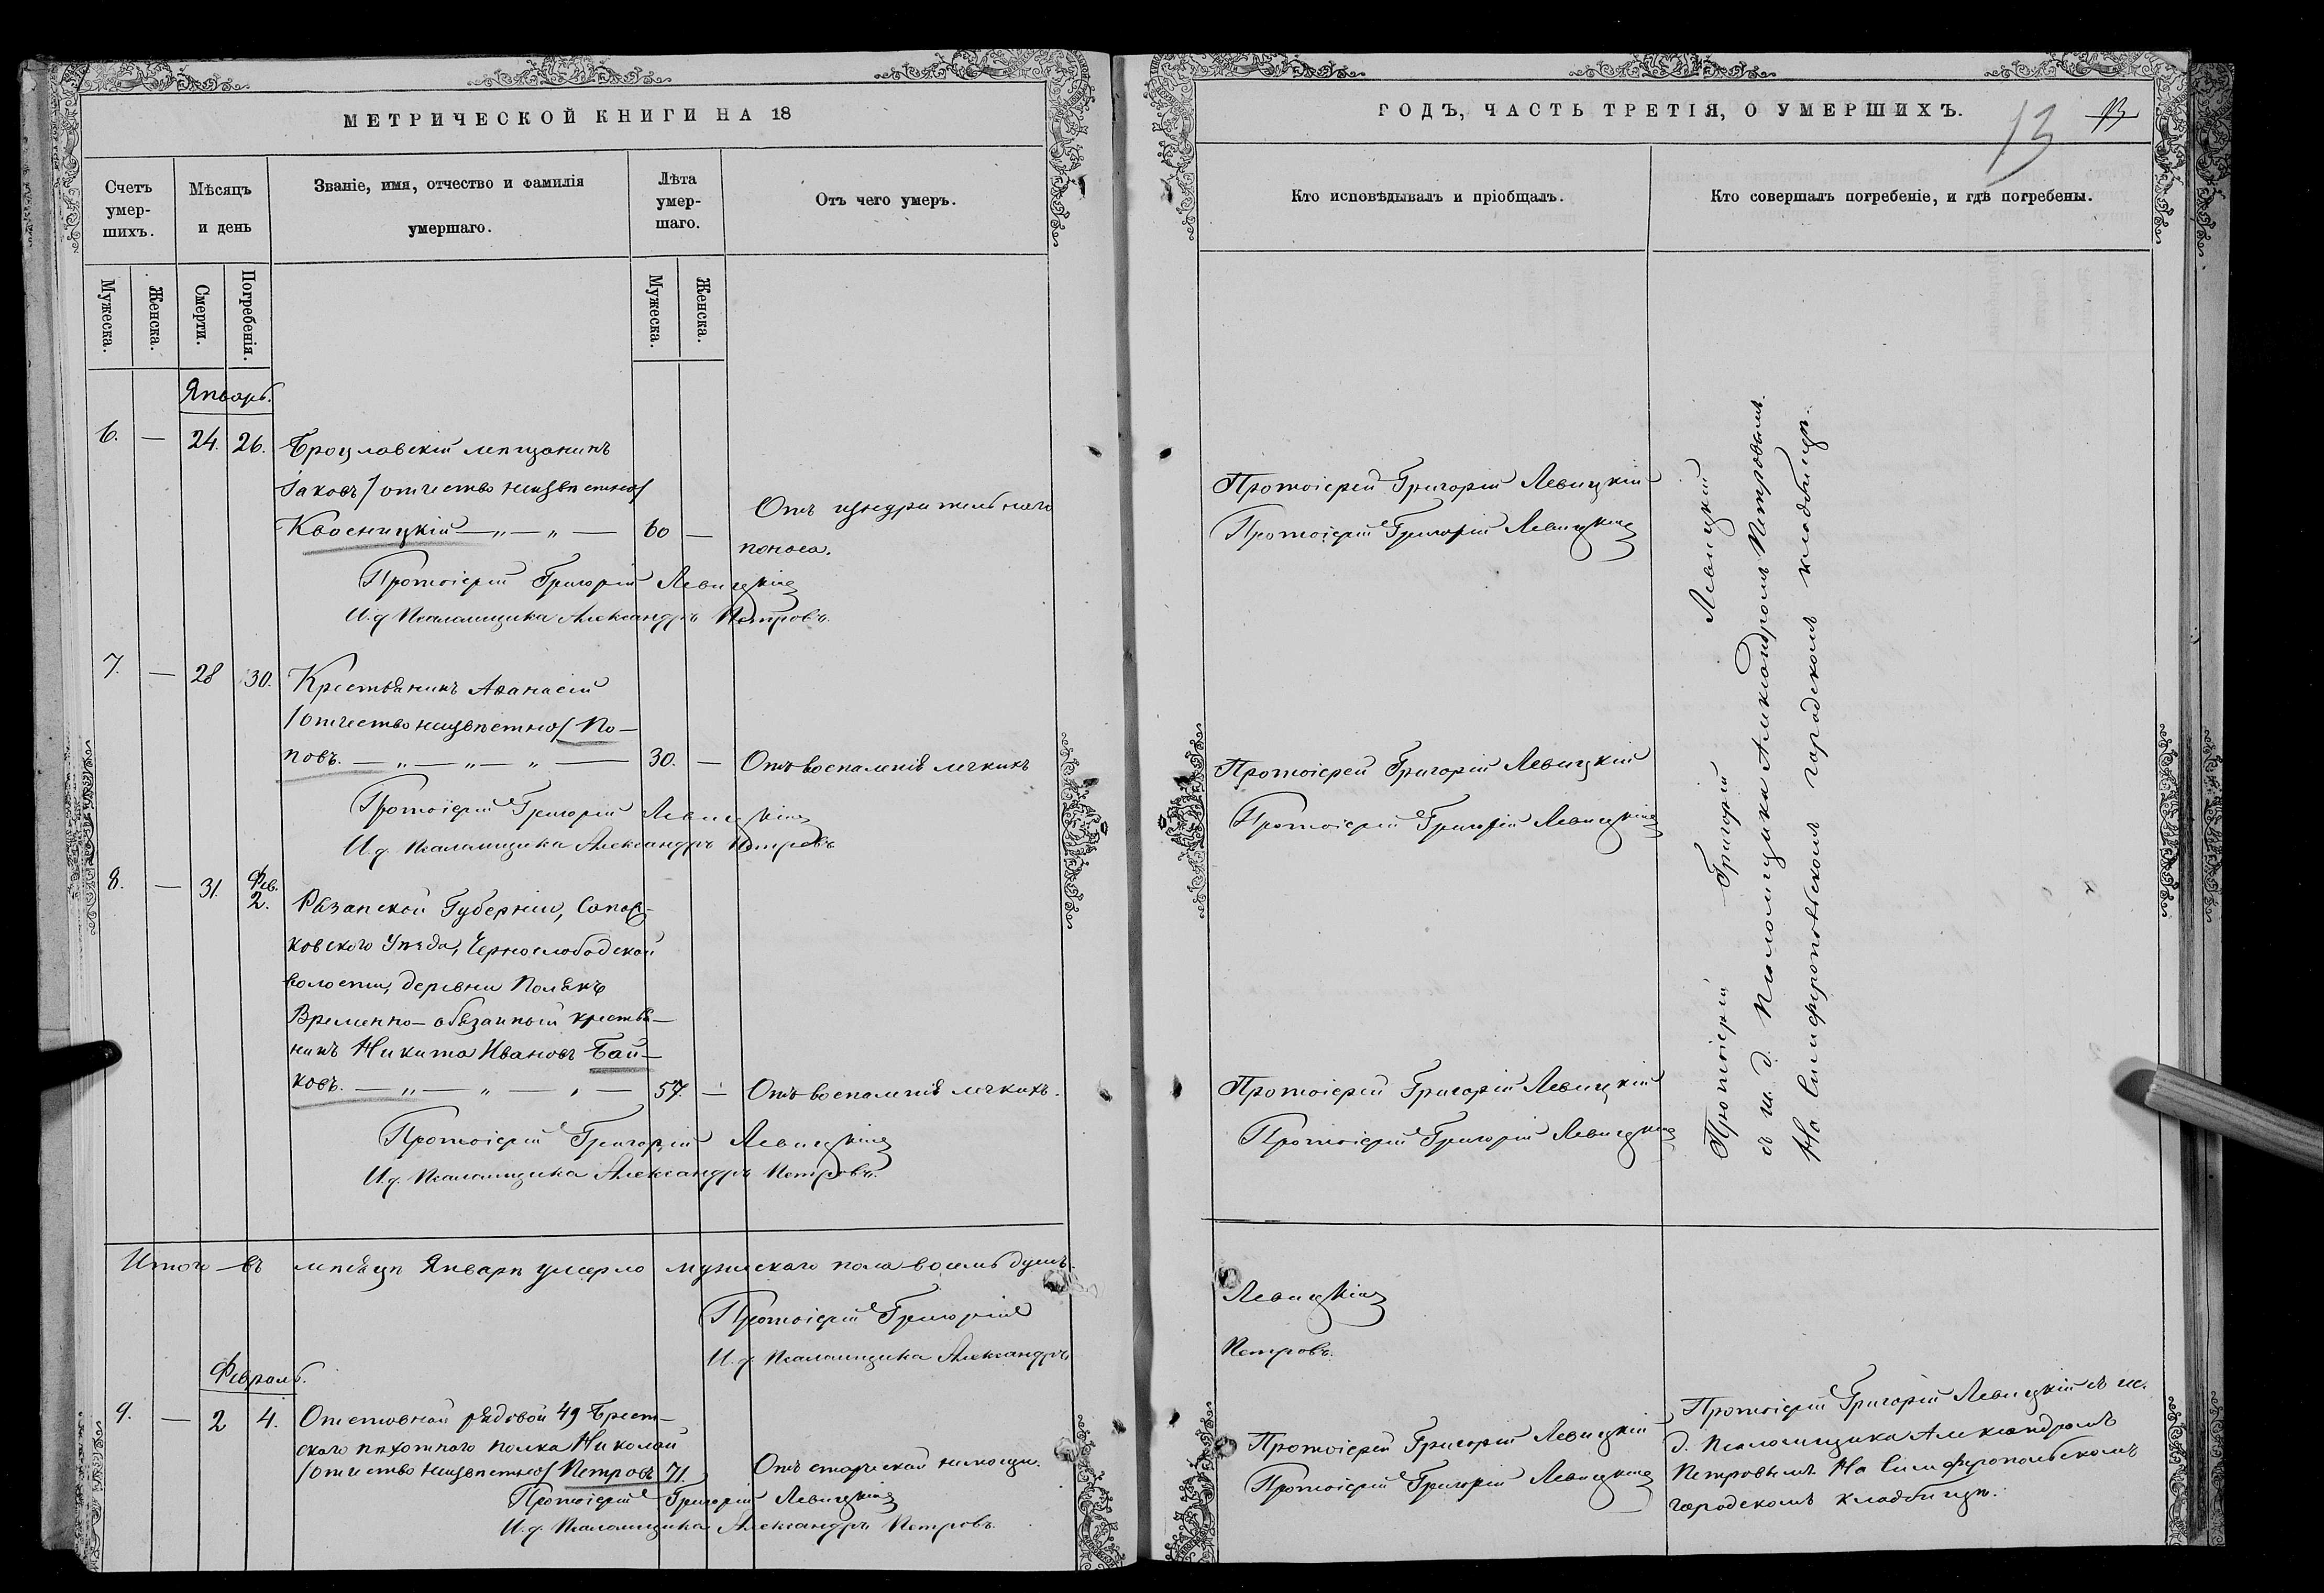 МЕТРИЧЕСКОЙ КНИГИ НА 18
Счетъ умер-шихъ.
Мѣсяцъ и день
Званіе, имя, отчество и фамилія умершаго.
Лѣта умер-шаго.
Отъ чего умеръ.
Мужеска.
Женска.
Смерти.
Погребенія.
Мужеска.
Женска.
Январь.
6. — 24. 26. Брацлавскій мѣщанинъ
Іаковъ /отчество неизвѣстно/
Квосницкій — „ — „ — 60 — Отъ изнурительнаго
поноса.
Протоіерей Григорій Левицкій
И. д. Псаломщика Александръ Петровъ.
7. — 28 30. Крестьянинъ Аѳанасій
/отчество неизвѣстно/ По-
повъ. — „ — „ — „ — 30. — Отъ воспаленія легкихъ
Протоіерей Григорій Левицкій
И. д. Псаломщика Александръ Петровъ
8. — 31. Фев. 2. Рязанской Губерніи, Сапож-
ковскаго Уѣзда, Чернослободской
волости, деревни Полякъ
Временно-обязанный крестья-
нинъ Никита Ивановъ Бай-
ковъ. — „ — „ — „ — 57. — Отъ воспаленія легкихъ.
Протоіерей Григорій Левицкій
И. д. Псаломщика Александръ Петровъ.
Итого въ мѣсяцѣ Январѣ умерло мужескаго пола восемь душъ.
Протоіерей Григорій
И. д. Псаломщика Александръ
Февраль.
9. — 2 4. Отставной рядовой 49 Брест-
скаго пѣхотнаго полка Николай
/отчество неизвѣстно/ Петровъ 71. Отъ старческой немощи.
Протоіерей Григорій Левицкій
И. д. Псаломщика Александръ Петровъ.
ГОДЪ, ЧАСТЬ ТРЕТІЯ, О УМЕРШИХЪ.
13
13
Кто исповѣдывалъ и пріобщалъ.
Кто совершалъ погребеніе, и гдѣ погребены.
Протоіерей Григорій Левицкій
Протоіерей Григорій Левицкій
Протоіерей Григорій Левицкій
Протоіерей Григорій Левицкій
Протоіерей Григорій Левицкій
Протоіерей Григорій Левицкій
Протоіерей Григорій Левицкій
съ и. д. Псаломщика Александромъ Петровымъ.
На Симферопольскомъ городскомъ кладбищѣ.
Левицкій
Петровъ.
Протоіерей Григорій Левицкій
Протоіерей Григорій Левицкій
Протоіерей Григорій Левицкій съ и.
д. Псаломщика Александромъ
Петровымъ. На Симферопольскомъ
городскомъ кладбищѣ.